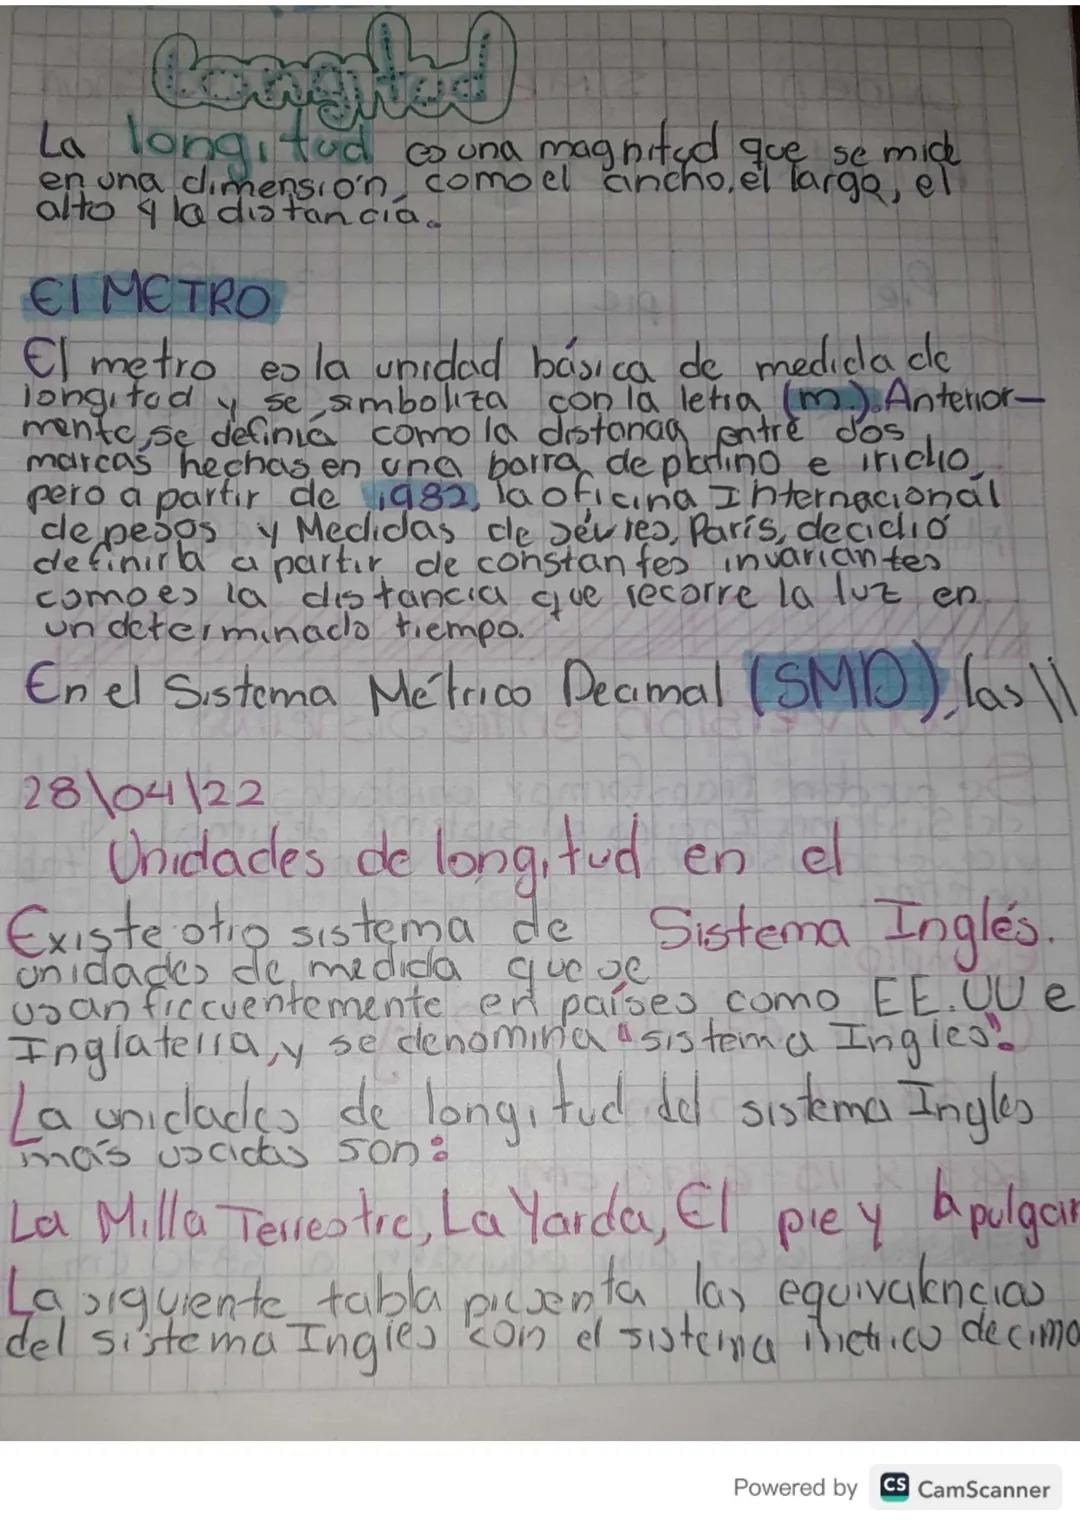 Longitud
La longitud es una magnitud que se mide
en una dimensión, como el ancho, el largo, el
alto y la distancia.
El METRO
El metro es la unidad básica de medida de
longitud y se simboliza con la letra (m). Anterior-
mente, se definía como la distancia entre dos
marcas hechas en una barra de platino e iridio,
pero a partir de 1982, la oficina Internacional
de pesos y Medidas de Sévres, París, decidió
definirla a partir de constantes invariantes
como es la distancia que recorre la luz en
un determinado tiempo.
En el Sistema Métrico Decimal (SMD), las \\
28\04\22
Unidades de longitud en el
Sistema Inglés.
Existe otro sistema de
unidades de medida que se
usan frecuentemente en países como EE.UU e
Inglaterra, y se denomina "sistema Ingles".
La unidades de longitud del sistema Ingles
más usadas son:
La Milla Terrestre, La Yarda, El pie y la pulgar
La siguiente tabla presenta las equivalencias
del sistema Ingles con el sistema métrico decima
Powered by CS CamScanner